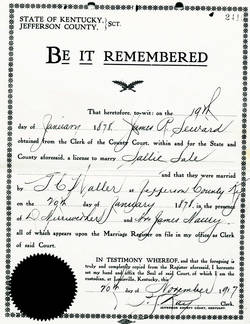 STATE OF KENTUCKY, } SCT.
JEFFERSON COUNTY,
241
BE IT REMEMBERED
That heretofore, to-wit: on the 19th
day of January 1878, James R. Seward
obtained from the Clerk of the County Court, within and for the State and
County aforesaid, a license to marry Sallie Sale
and that they were married
by T E Waller in Jefferson County Ky
on the 20th day of January 1878, in the presence
of D Merriwether and James
all of which appears upon the Marriage Register on file in my office as Clerk
of said Court.
IN TESTIMONY WHEREOF, and that the foregoing is
truly and completely copied from the Register aforesaid, I hereunto
set my hand and affix the Seal of said Court, of which I am the
custodian, at Louisville, Kentucky, this
20th day of November 1917
Clerk
JEFFERSON COUNTY COURT, KENTUCKY